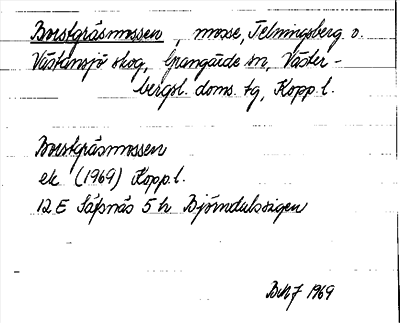 Borstgräsmossen, mosse, Telningsberg o.
Västansjö skog, Grangärde sn, Väster-
bergsl. doms. tg, Kopp. l.
Borstgräsmossen
ek (1969) Kopp. l.
12 E Säfsnäs 5 h
1969